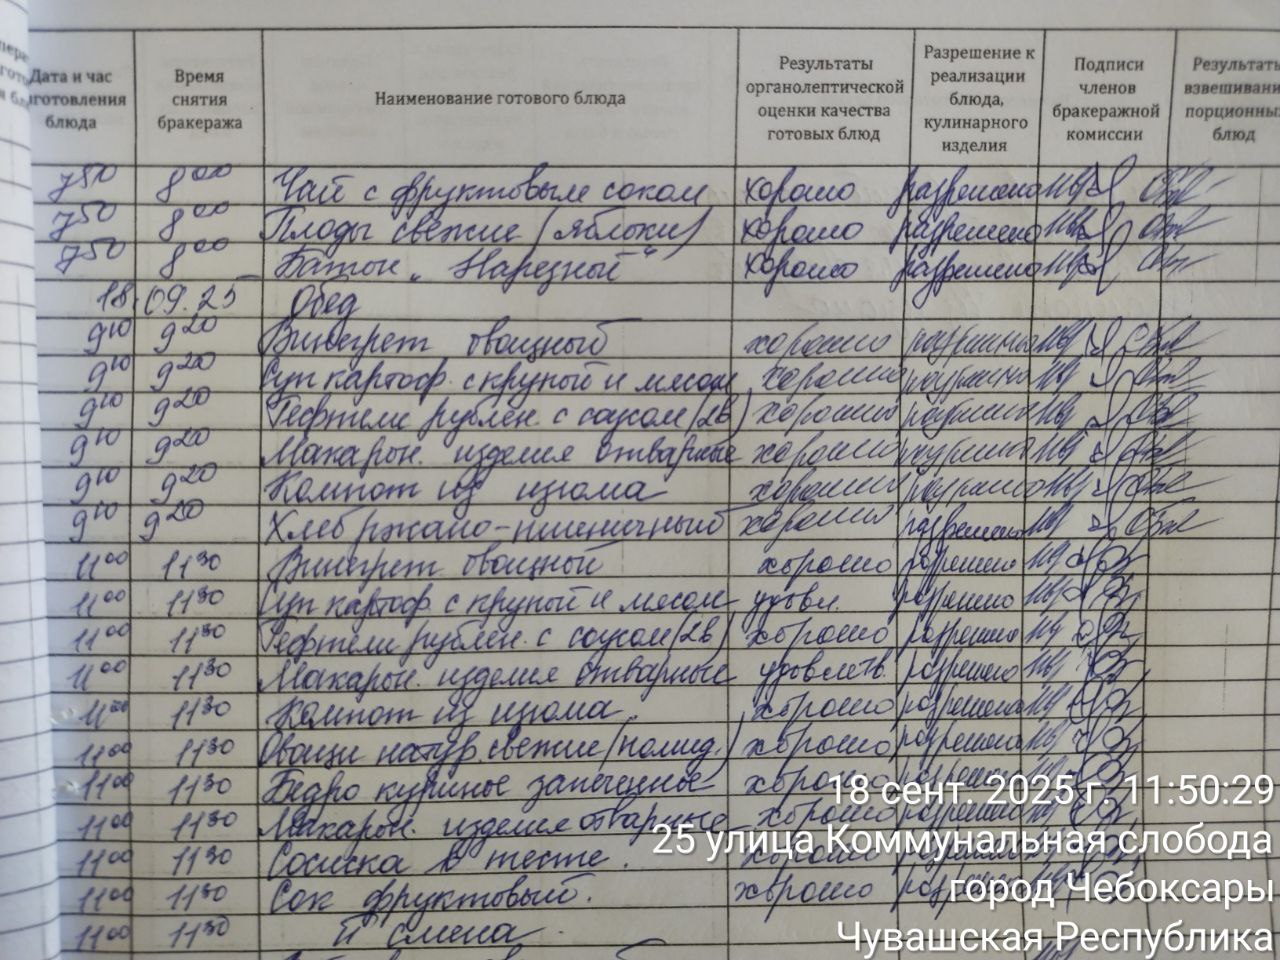 Дата и час готовления блюда
Время снятия бракеража
Наименование готового блюда
Результаты органолептической оценки качества готовых блюд
Разрешение к реализации блюда, кулинарного изделия
Подписи членов бракеражной комиссии
Результаты взвешивани порционных блюд
7 50 8 00 Чай с фруктовым соком хорошо разрешено
7 50 8 00 Плоды свежие (яблоки) хорошо разрешено
7 50 8 00 Батон "Нарезной" хорошо разрешено
18.09.25 Обед
9 10 9 20 Винегрет овощный хорошо разрешено
9 10 9 20 Суп картоф. с крупой и мясом хорошо разрешено
9 10 9 20 Тефтели рублен. с соусом (2в) хорошо разрешено
9 10 9 20 Макарон. изделия отварные хорошо разрешено
9 10 9 20 Компот из изюма хорошо разрешено
9 10 9 20 Хлеб ржано-пшеничный хорошо разрешено
11 00 11 30 Винегрет овощный хорошо разрешено
11 00 11 30 Суп картоф. с крупой и мясом удовл. разрешено
11 00 11 30 Тефтели рублен. с соусом (2в) хорошо разрешено
11 00 11 30 Макарон. изделия отварные удовлетв. разрешено
11 00 11 30 Компот из изюма. хорошо разрешено
11 00 11 30 Овощи натур. свежие (помид.) хорошо разрешено
11 00 11 30 Бедро куриное запеченное хорошо разрешено
11 00 11 30 Макарон. изделия отварные хорошо разрешено
11 00 11 30 Сосиска в тесте. хорошо разрешено
11 00 11 30 Сок фруктовый. хорошо разрешено
11 00 11 30 II смена
18 сент. 2025 г. 11:50:29
25 улица Коммунальная слобода
город Чебоксары
Чувашская Республика